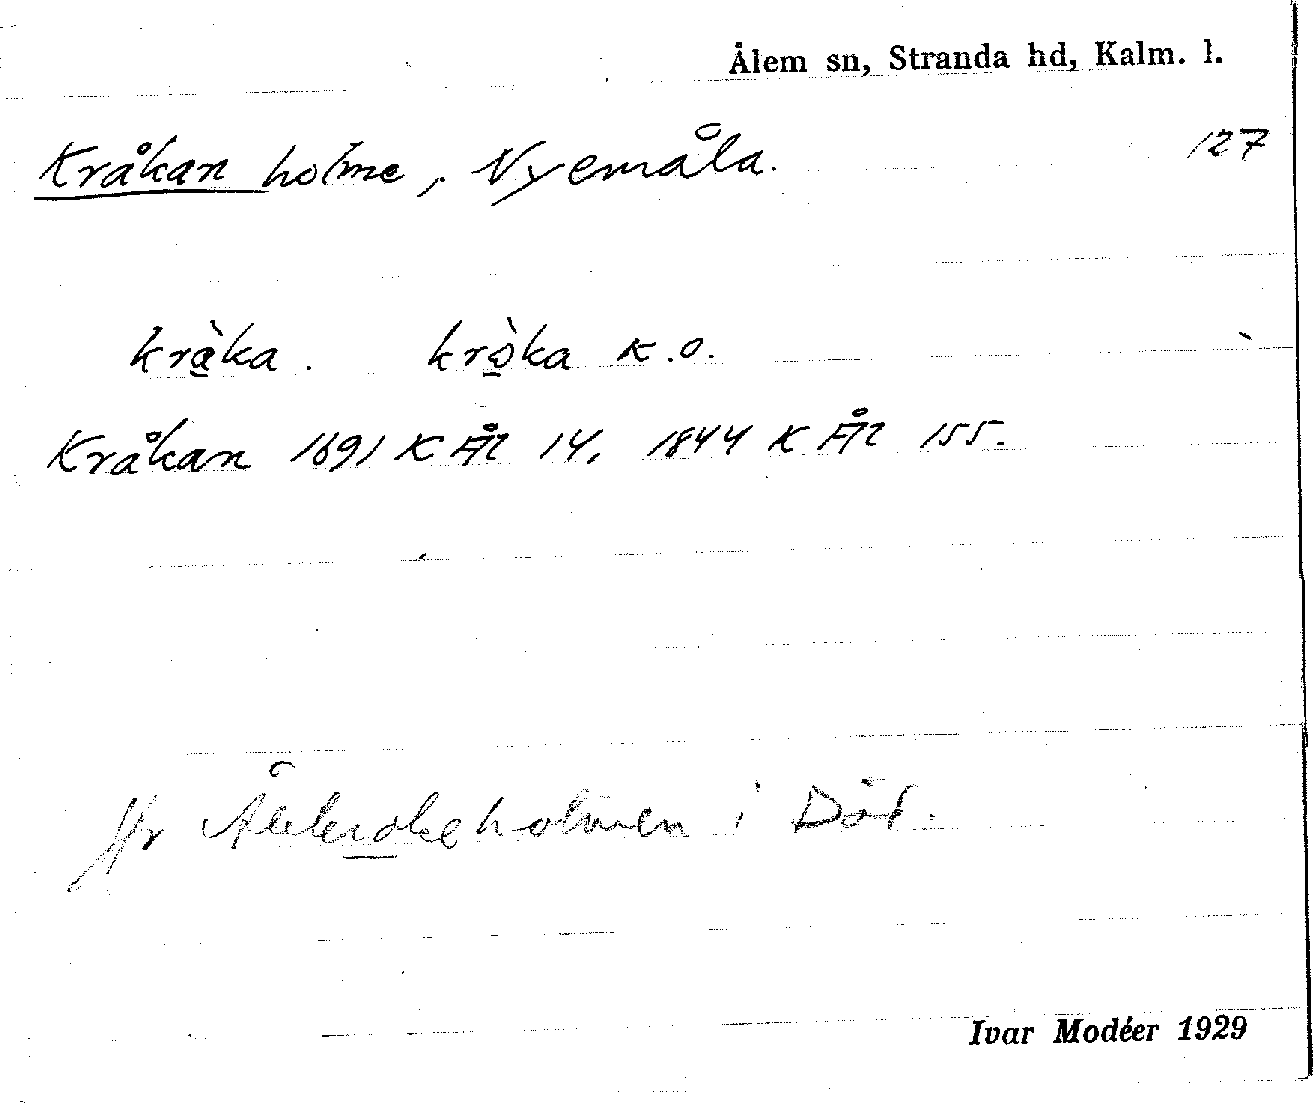 Ålem sn, Stranda hd, Kalm. l.
Kråkan holme, Nyemåla. 127
kràka. kròka K.O.
Kråkan 1691 K Ål 14, 1844 K Ål 155.
jfr i Död.
Ivar Modéer 1929